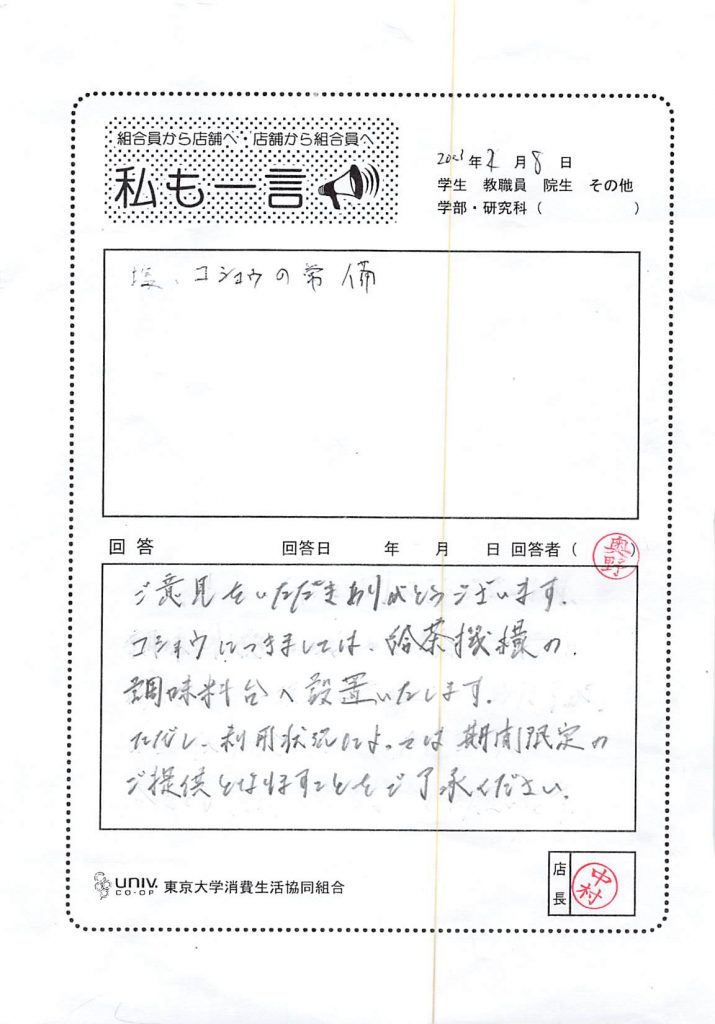 組合員から店舗へ・店舗から組合員へ
私も一言
2021年2月8日
学生 教職員 院生 その他
学部・研究科（ ）
塩、コショウの常備
回答 回答日 年 月 日 回答者（奥野）
ご意見をいただきありがとうございます。
コショウにつきましては、給茶機横の
調味料台へ設置いたします。
ただし、利用状況によっては期間限定の
ご提供となりますことをご了承ください。
UNIV. CO-OP 東京大学消費生活協同組合
店長 中村